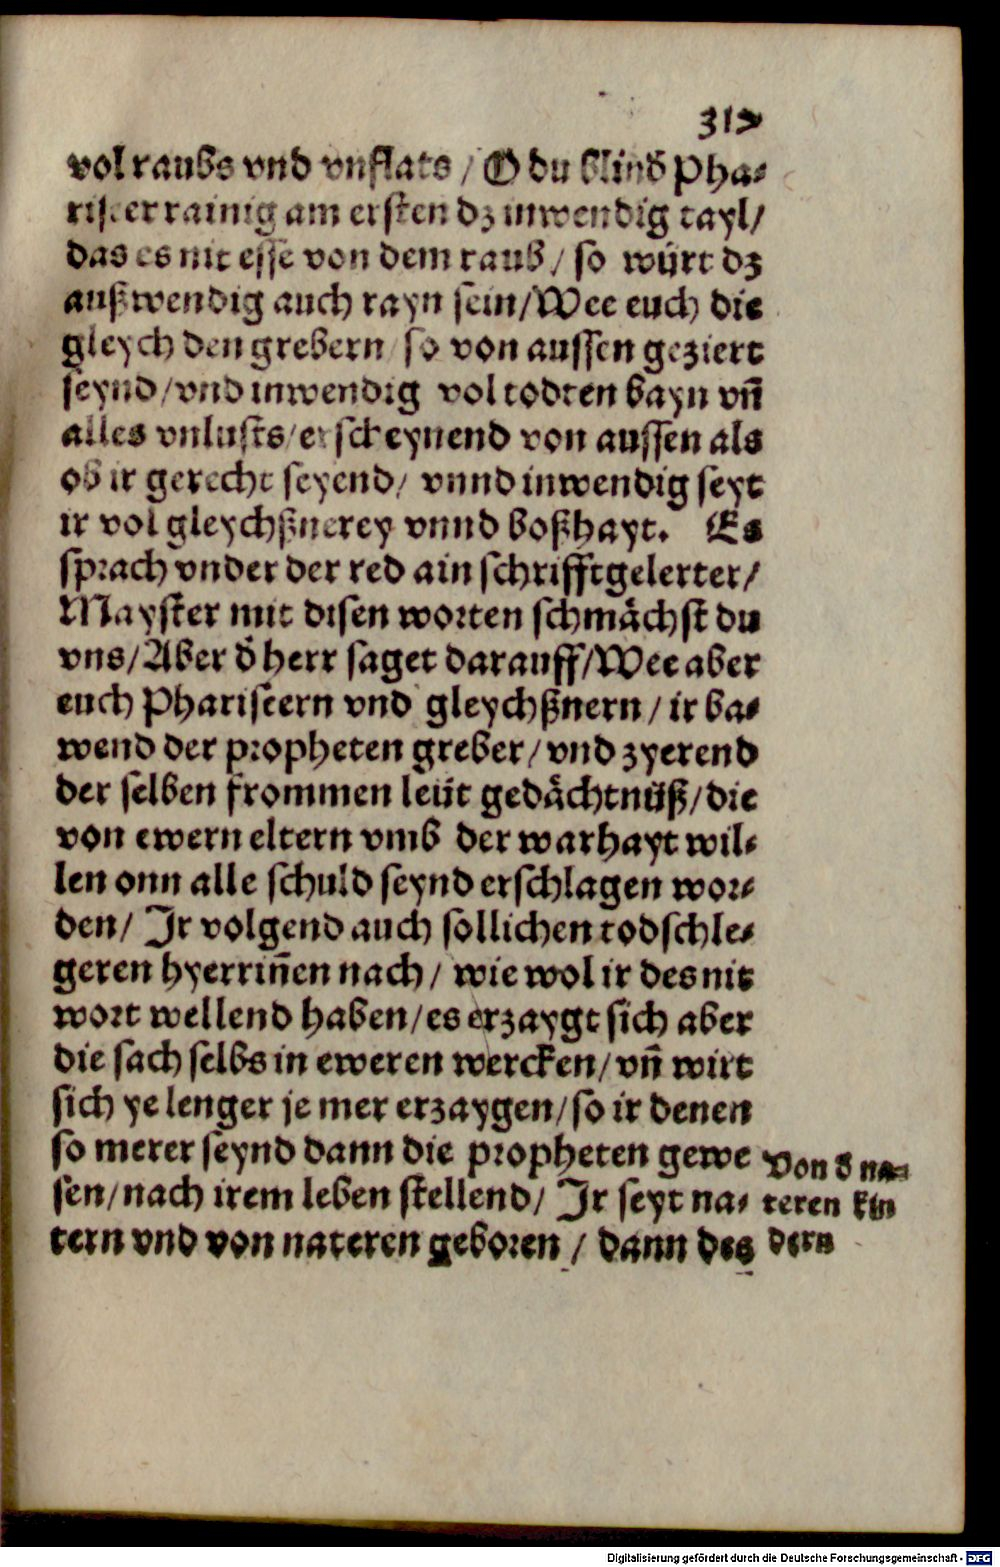 317
vol raubs vnd vnflats / O du blind Pha⸗
riseer rainig am ersten dz inwendig tayl /
das es nit esse von dem raub / so würt dz
außwendig auch rayn sein / Wee euch die
gleych den grebern / so von aussen geziert
seynd / vnd inwendig vol todten bayn vñ
alles vnlusts / erscheynend von aussen als
ob ir gerecht seyend / vnnd inwendig seyt
ir vol gleychßnerey vnnd boßhayt. Es
sprach vnder der red ain schrifftgelerter /
Mayster mit disen worten schmächst du
vns / Aber d̕ herr saget darauff / Wee aber
euch Phariseern vnd gleychßnern / ir ba⸗
wend der propheten greber / vnd zyerend
der selben frommen leüt gedächtnüß / die
von ewern eltern vmb der warhayt wil⸗
len onn alle schuld seynd erschlagen wor⸗
den / Jr volgend auch sollichen todschle⸗
geren hyerriñen nach / wie wol ir des nit
wort wellend haben / es erzaygt sich aber
die sach selbs in eweren wercken / vñ wirt
sich ye lenger je mer erzaygen / so ir denen
so merer seynd dann die propheten gewe
sen / nach irem leben stellend / Jr seyt na⸗
tern vnd von nateren geboren / dann des
Von d̕ na⸗
teren kin
dern
Digitalisierung gefördert durch die Deutsche Forschungsgemeinschaft - DFG